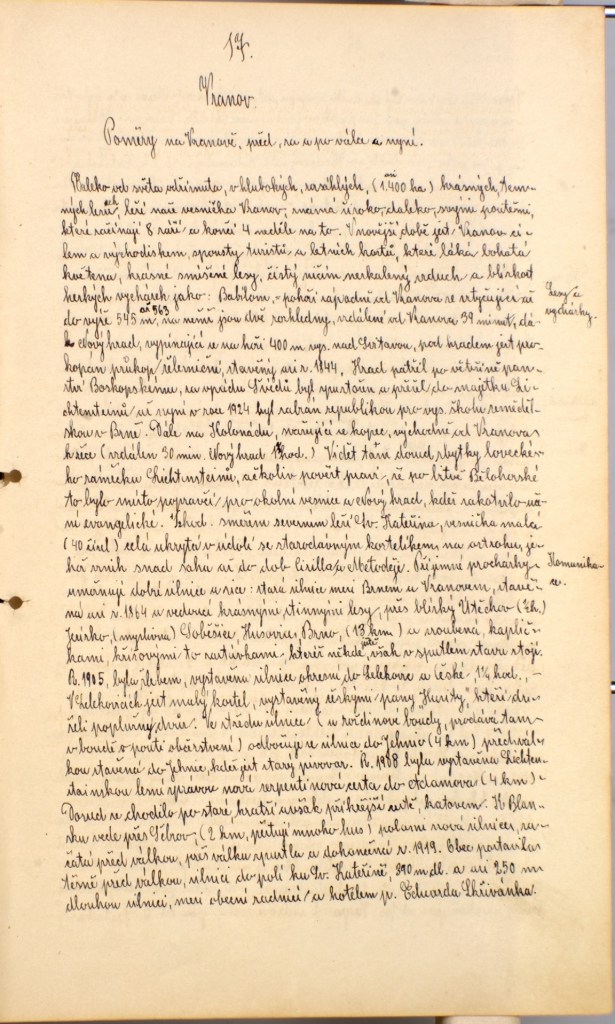 17.
Vranov.
Poměry na Vranově, před, za a po válce a nyní.
Daleko od světa odříznuta, v hlubokých, rozsáhlých, (1.400 ha) krásných, tem-
ných lesích, leží naše vesnička Vranov, známá široko, daleko, svými poutěmi,
které začínají 8 září a končí 4 neděle na to. V novější době jest Vranov cí-
lem a východiskem, spousty turistů a letních hostů, které láká bohatá
květena, krásné smíšené lesy, čistý ničím nezkalený vzduch a blízkost
hezkých vycházek jako: Babilom, - pohoří západně od Vranova se vztyčující až
do výše 545 m, až 563 na němž jsou dvě rozhledny, vzdálené od Vranova 39 minut, dá-
Lesy a
vycházky.
le Nový hrad, vypínající se na hoře 400 m vys. nad Svitavou, pod hradem jest pro-
kopán průkop železniční, stavěný asi r. 1844. Hrad patřil po většině pan-
ství Boskovskému, za vpádu Švédů byl zpustošen a přišel do majetku Li-
chtensteinů až nyní v roce 1924 byl zabrán republikou pro vys. školu zeměděl-
skou v Brně. Dále na Kolonádu, zvažující se kopec, východně od Vranova
k řece (vzdálen 30 min. Nový hrad 1½ hod.) Viděti tam dosud zbytky lovecké-
ho zámečku Lichtensteinů, ačkoliv pověst praví, že po bitvě Bělohorské
to bylo místo popravčí pro okolní vesnice a Nový hrad, kdež zakotvilo uče-
ní evangelické. ½ hod. směrem severním leží Sv. Kateřina, vesnička malá
(40 čísel) celá ukrytá v údolí se starodávným kostelíkem, na ostrohu, je-
hož vznik snad sahá až do dob Cirilla a Metoděje. Příjemné procházky
Komunika-
ce.
umožňují dobré silnice a sice: stará silnice mezi Brnem a Vranovem, stavě-
na asi r. 1864 a vedoucí krásnými stinnými lesy, přes blízký Útěchov (½ h.)
Jezírko, (myslivna) Soběšice, Husovice, Brno, (13 km) a vroubená, kaplič-
kami, křížovými to zastávkami, kteréž někde ještě, však v spustlém stavu stojí.
R. 1905, byla Ževem, vystavěna silnice okresní do Lelekovic a České 1¼ hod., -
V Lelekovicích jest malý kostel, vystavěný českými pány „Kunšty“, kteří dr-
želi poplužný dvůr. Ve středu silnice (u Rozdínove boudy, prodává tam
v boudě o pouti občerstvení) odbočuje se silnice do Jehnic (4 km) předvál-
kou stavěná do Jehnic, kdež jest starý pivovar. R. 1908 byla vystavěna Lichten-
štainskou lesní správou nová serpentinová cesta do Adamova (4 km).
Dosud se chodilo po staré, kratší avšak příkřejší cestě, katovem. K Blan-
sku vede přes Šebrov, (2 km, pěstují mnoho hus) polami nová silnice, za-
čatá před válkou, přes válku spustla a dokončená r. 1919. Obec postavila
těsně před válkou, silnici do polí ku Sv. Kateřině, 390 m dl. a asi 250 m
dlouhou silnici, mezi obecní radnicí a hotelem p. Eduarda Skřivánka.